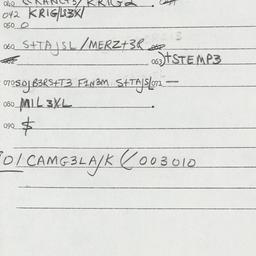 042 KRIG/L33X/
050 0
060 S+TAJSL /MERZ+3R
063)+STEMP3
070 SOJB3RS+T3 F1N3M S+TAJS/072 —
080 MIL3XL
090 $
701/CAMG3LA/K (/003010